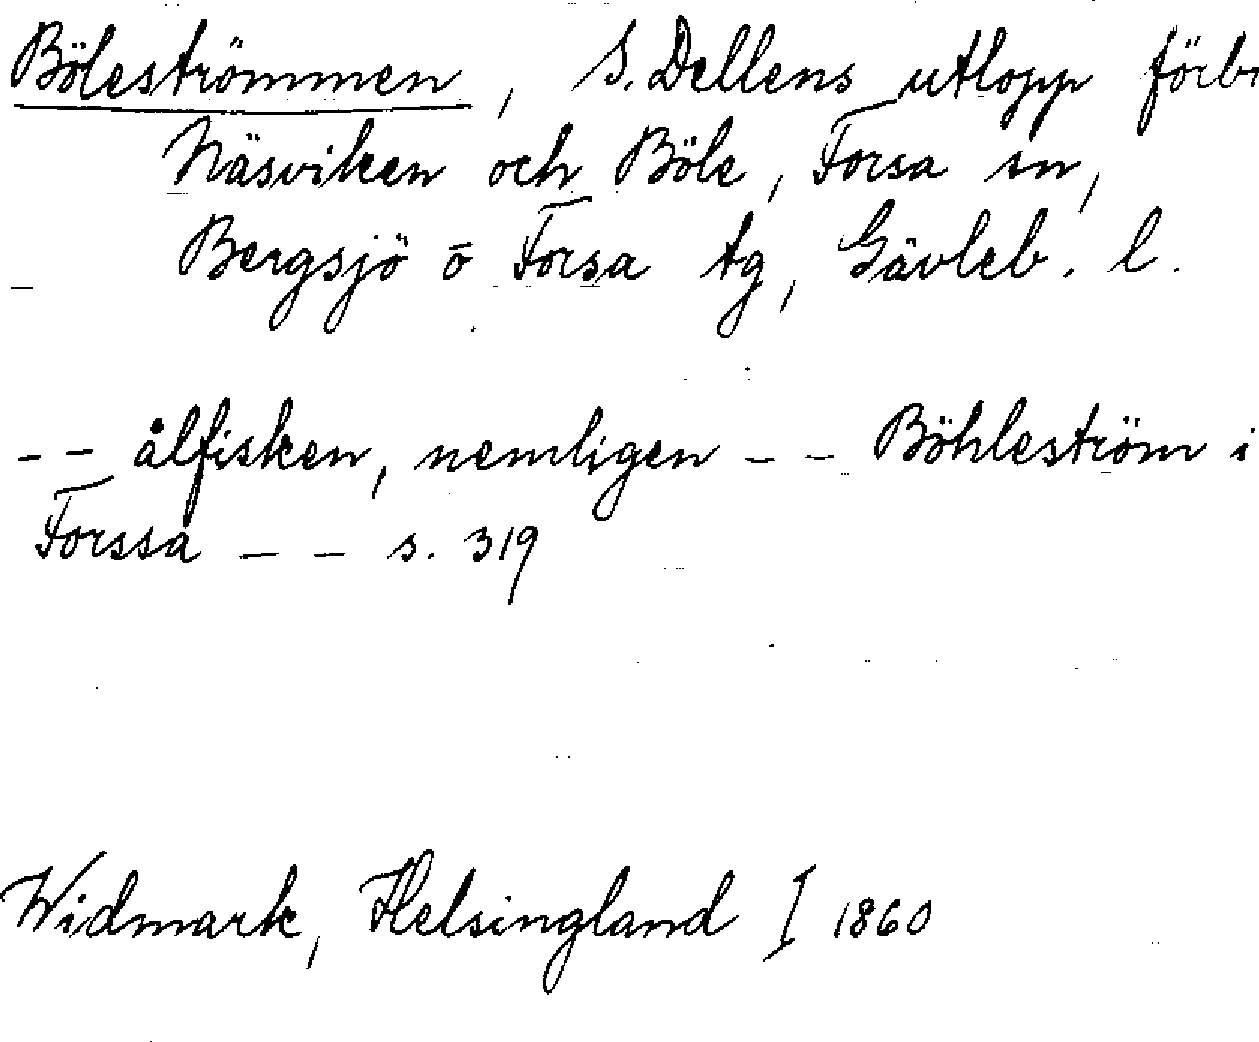 Böleströmmen, S. Dellens utlopp förbi
Näsviken och Böle, Forsa sn,
Bergsjö o Forsa tg, Gävleb. l.
- - ålfisken, nemligen - - Böhleström i
Forssa - - s. 319
Widmark, Helsingland I 1860